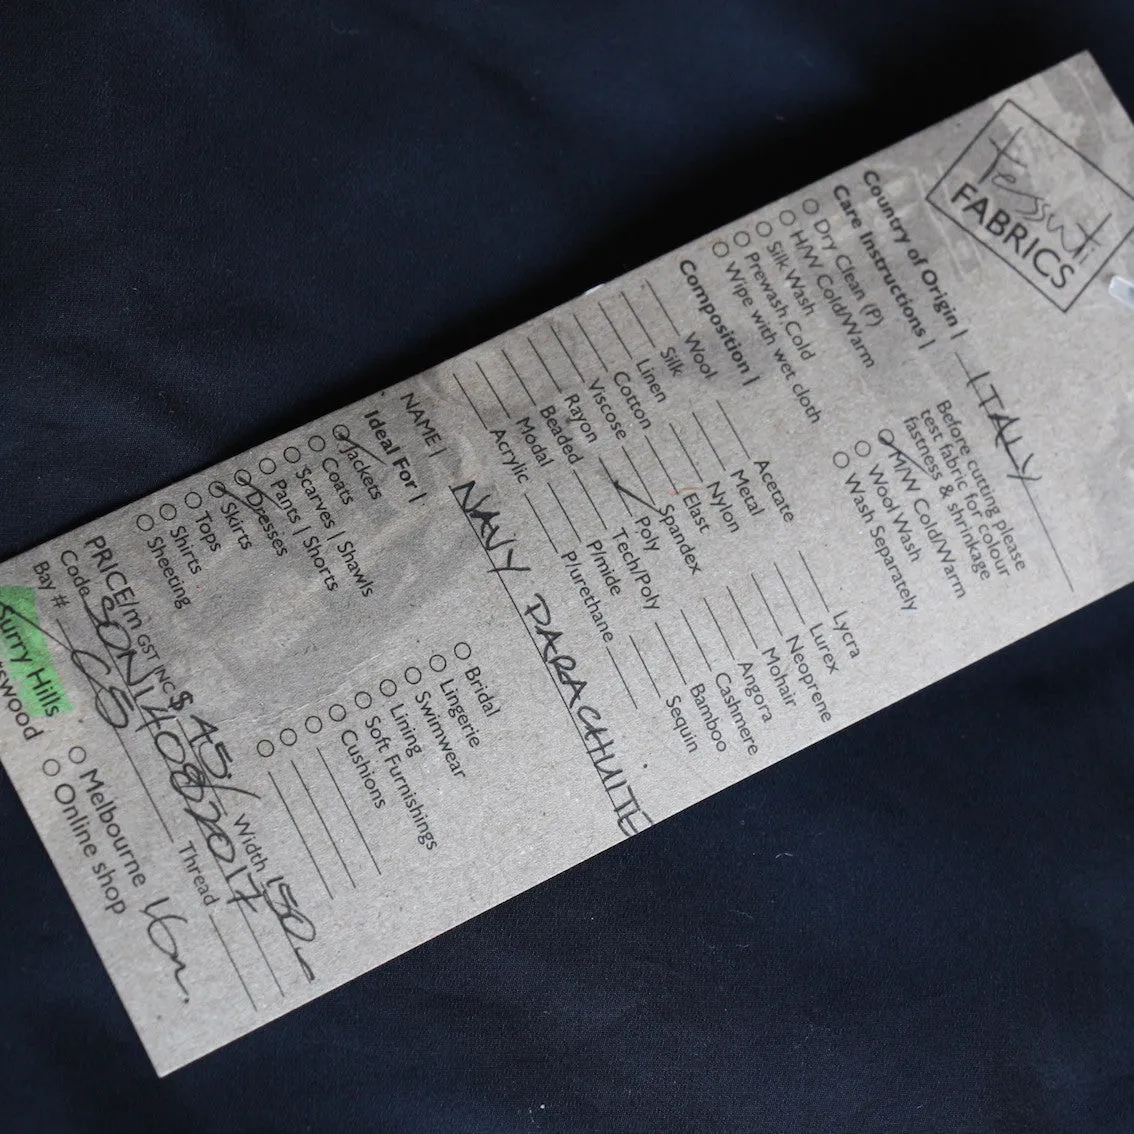 Tessuti
FABRICS
Country of Origin | ITALY
Care Instructions |
Before cutting please
test fabric for colour
fastness & shrinkage
Dry Clean (P)
H/W Cold/Warm
Silk Wash
Prewash Cold
Wipe with wet cloth
M/W Cold/Warm
Wool Wash
Wash Separately
Composition |
Wool
Silk
Linen
Cotton
Viscose
Rayon
Beaded
Modal
Acrylic
Acetate
Metal
Nylon
Elast
Spandex
Poly
Tech/Poly
P/mide
P/urethane
Lycra
Lurex
Neoprene
Mohair
Angora
Cashmere
Bamboo
Sequin
NAME | NAVY PARACHUITE
Ideal For |
Jackets
Coats
Scarves | Shawls
Pants | Shorts
Dresses
Skirts
Tops
Shirts
Sheeting
Bridal
Lingerie
Swimwear
Lining
Soft Furnishings
Cushions
PRICE/m GST INC $ 45/ Width 150
Code SON14082017
Bay # Thread
Surry Hills
swood
Melbourne
Online shop
16m.